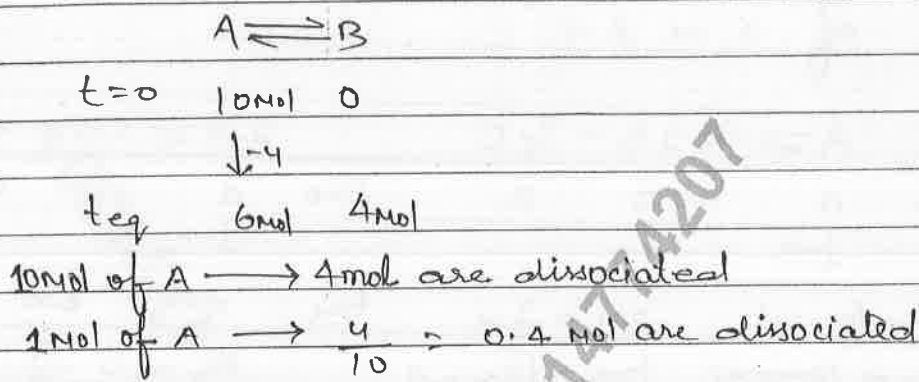 A ⇌ B
t=0 10Mol 0
↓-4
teq 6Mol 4Mol
10Mol of A ⟶ 4mol are dissociated
1Mol of A ⟶ 4/10 = 0.4 Mol are dissociated
14774207